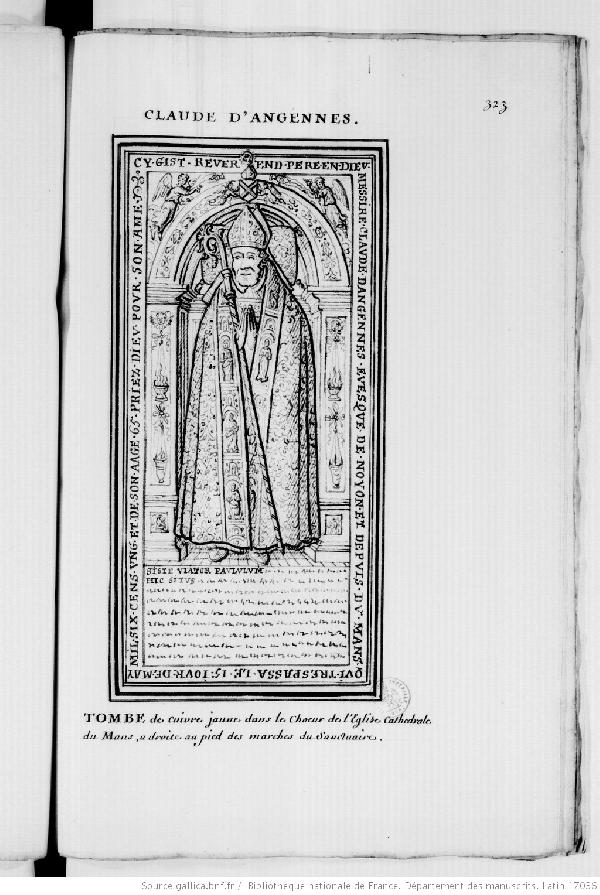 323
CLAUDE D'ANGENNES.
CY·GIST·REVEREND·PERE·EN·DIEV·
MESSIRE·CLAUDE·DANGENNES·EVESQVE·DE·NOYON·ET·DEPVIS·DV·MANS·
QVI·TRESPASSA·LE·15·IOVR·DE·MAY
MIL·SIX·CENS·VNG·ET·DE·SON·AAGE·65·PRIEZ·DIEV·POVR·SON·AME·
SISTE VIATOR PAVLVLVM
HIC SITVS
TOMBE de cuivre jaune dans le Choeur de l'Eglise Cathedrale
du Mans, a droite au pied des marches du Sanctuaire.
Source gallica.bnf.fr / Bibliothèque nationale de France. Département des manuscrits. Latin 17036